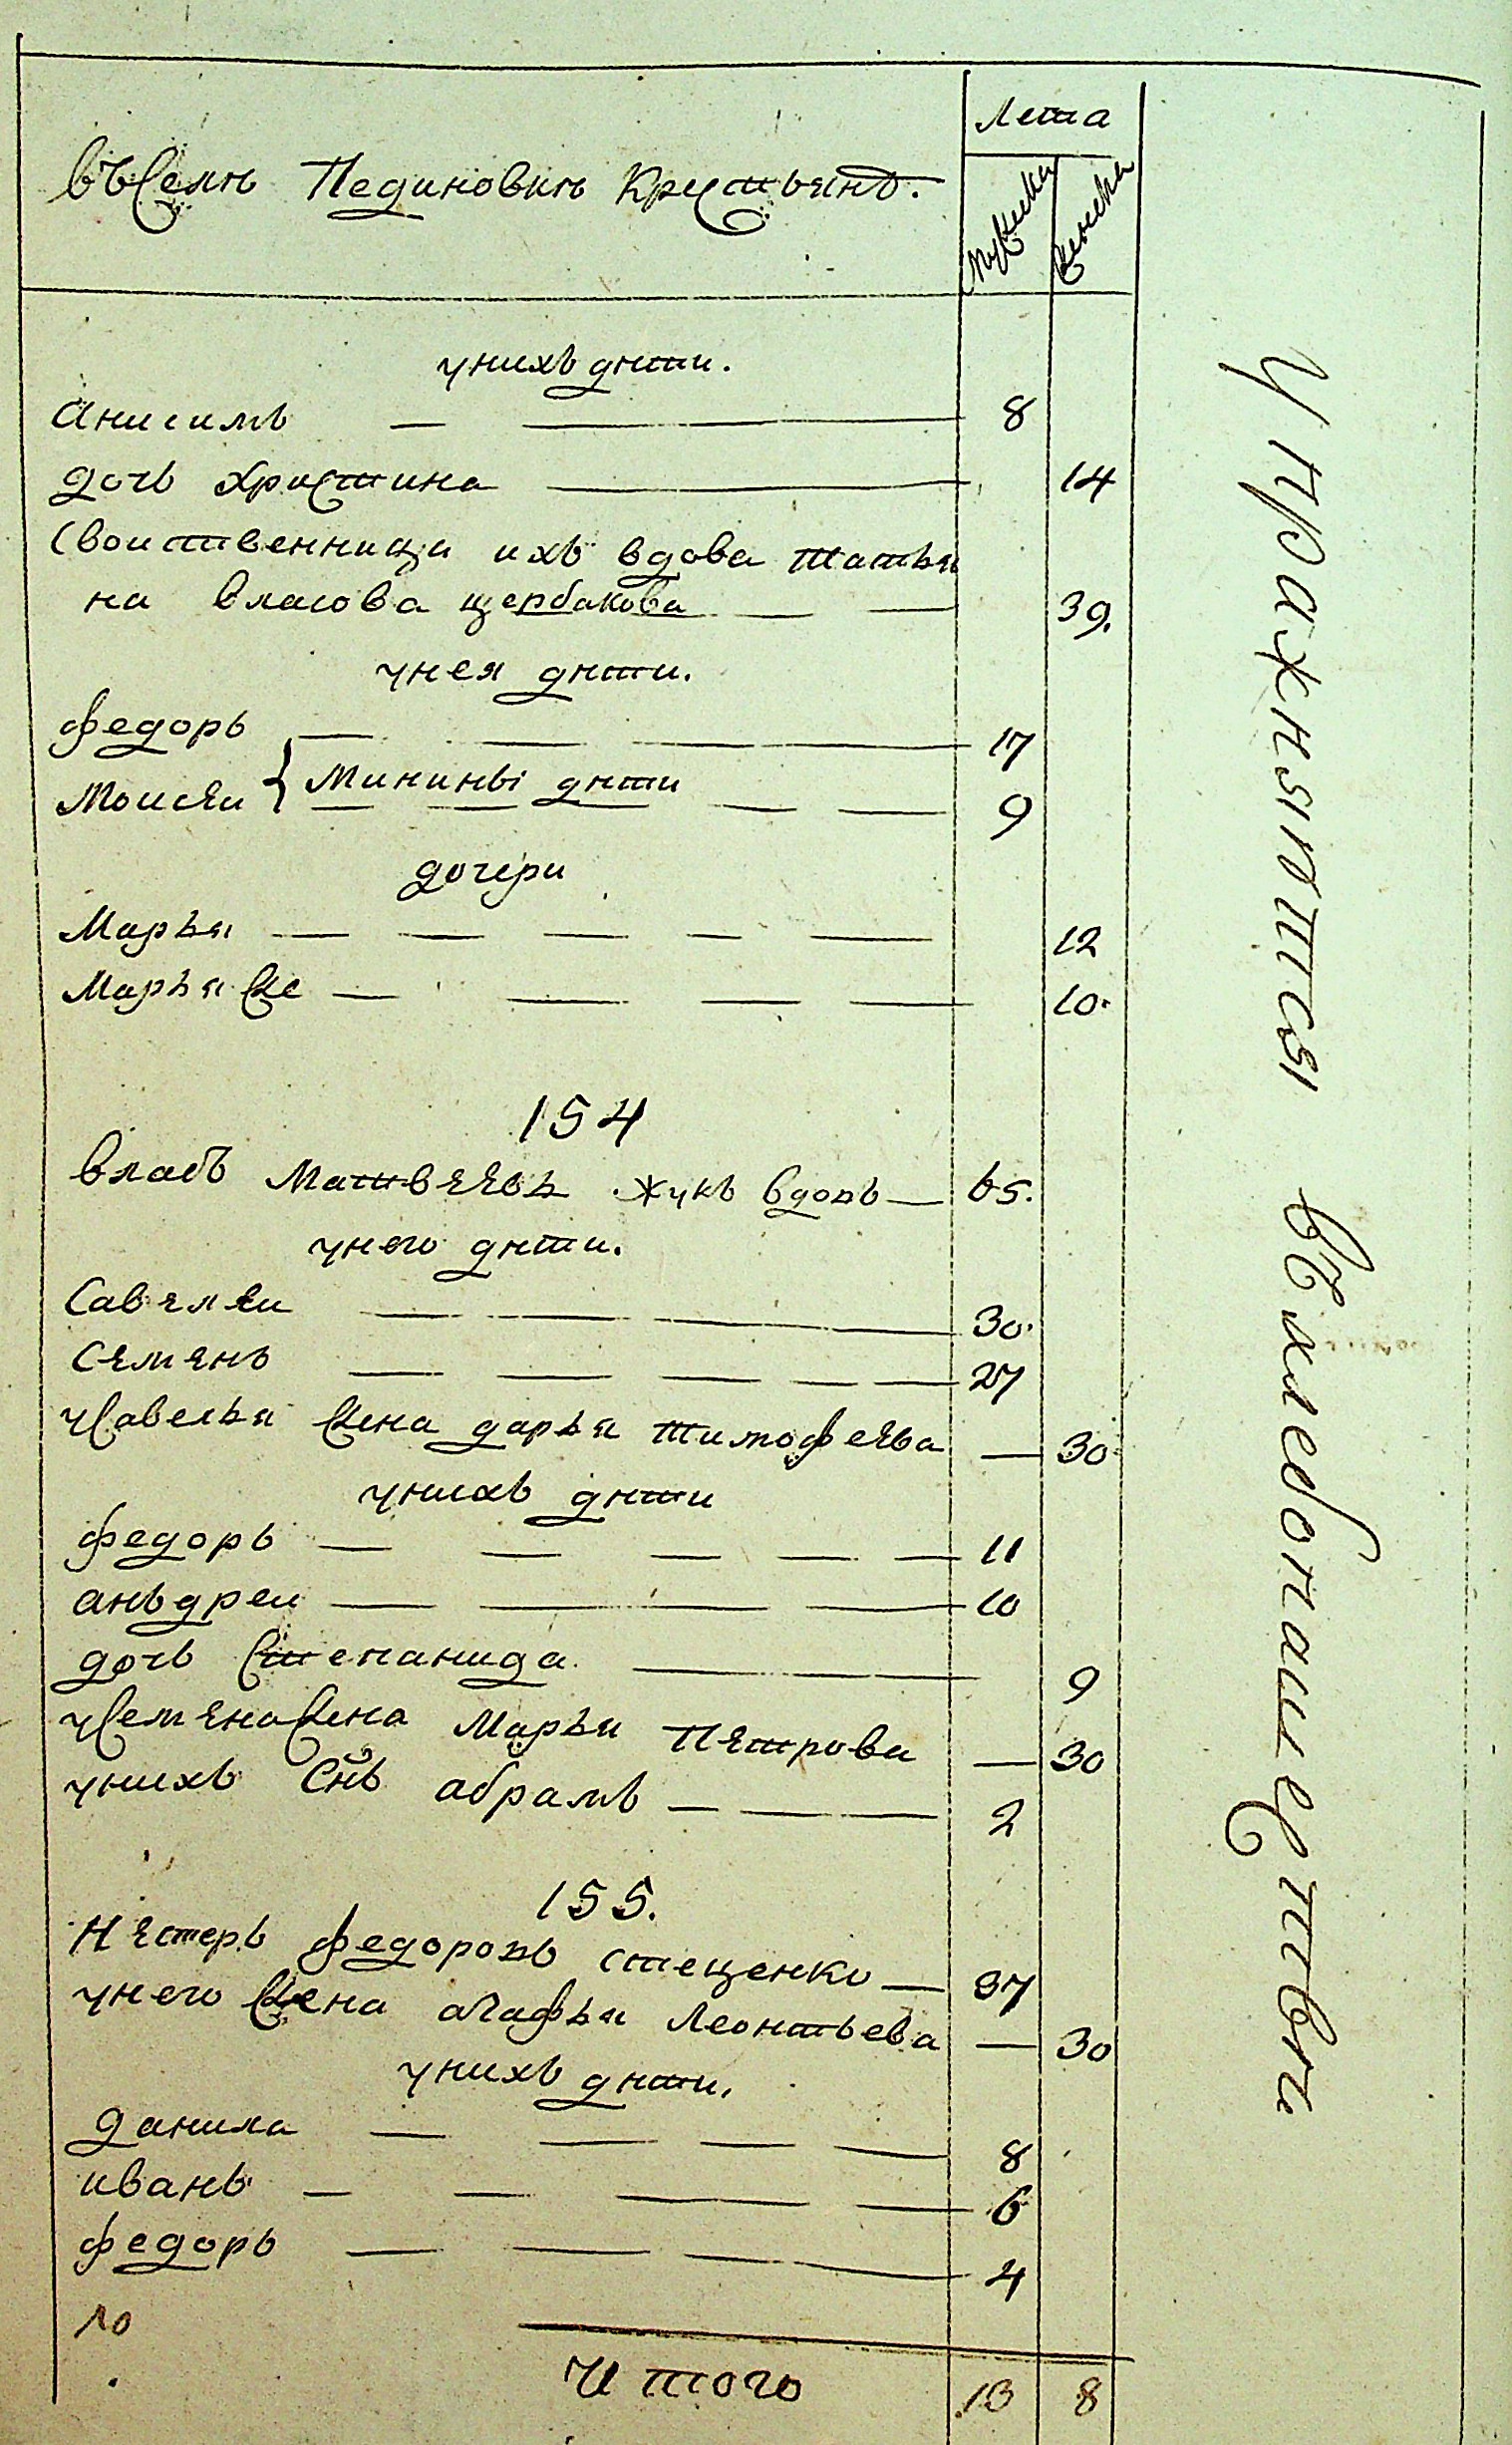 въ Селѣ Пединовкѣ крестьянъ.
Лета
мужска
женска
у нихъ дѣти.
Анисимъ 8
дочь христина 14
Своиственница ихъ вдова татья
на власова щербакова 39.
у нея дѣти.
федоръ 17
Моисеи } Минины дѣти 9
дочери
Марья 12
Марья же 10.
154
власъ Матвеевъ жукъ вдовъ 65.
у него дѣти.
Савелеи 30.
Семенъ 27
у Савелья жена дарья тимофеева 30
у нихъ дѣти
федоръ 11
аньдреи 10
дочь Степанида 9
у Семена жена Марья Петрова 30
у нихъ Снъ абрамъ 2
155.
Нестеръ федоровъ стеценко 37
у него жена агафья Леонтьева 30
у нихъ дѣти.
данила 8
иванъ 6
федоръ 4
ло
Итого 13 8
Упражняются въ хлебопашествѣ